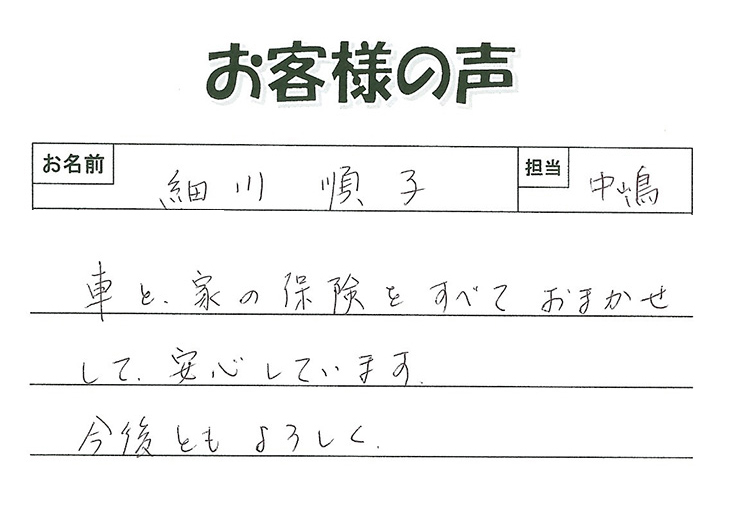 お客様の声
お名前 細川 順子 担当 中嶋
車と、家の保険をすべておまかせ
して、安心しています。
今後ともよろしく。